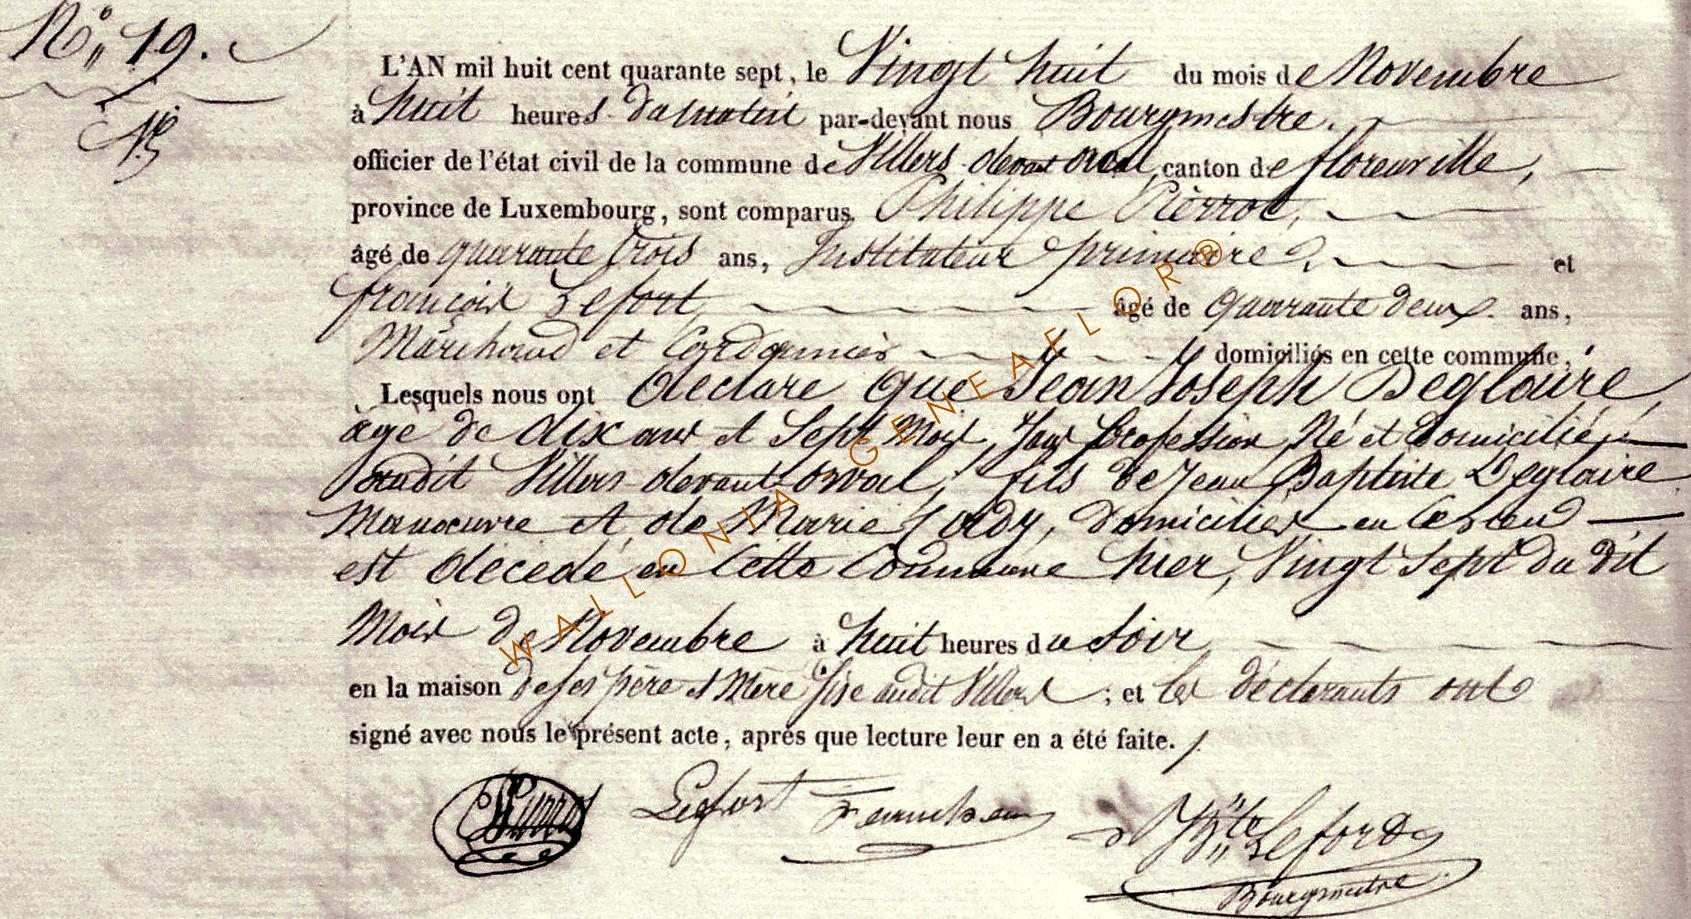 N° 19.
L'AN mil huit cent quarante sept, le Vingt huit du mois de Novembre
à huit heures du matin par-devant nous Bourgmestre.
officier de l'état civil de la commune de Villers devant orval, canton de florenville,
province de Luxembourg, sont comparus Philippe Pierrot,
âgé de quarante trois ans, Instituteur primaire et
françois Lefort, âgé de quarante deux ans,
Marchand et Cordonnier domiciliés en cette commune,
Lesquels nous ont déclaré que Jean Joseph Déglaire,
âgé de dix ans et Sept Mois, Sans profession, Né et domicilié
audit Villers devant orval, fils de Jean Baptiste Déglaire
Manoeuvre et de Marie Lordy, domiciliés en ce lieu
est décédé en Cette Commune hier, Vingt Sept du dit
Mois de Novembre à huit heures du Soir
en la maison de ses père et Mère Sise audit Villers ; et les déclarants ont
signé avec nous le présent acte, après que lecture leur en a été faite.
Pierrot Lefort François J Bte Lefort
Bourgmestre
WALLONIA - GENEAFLOR®